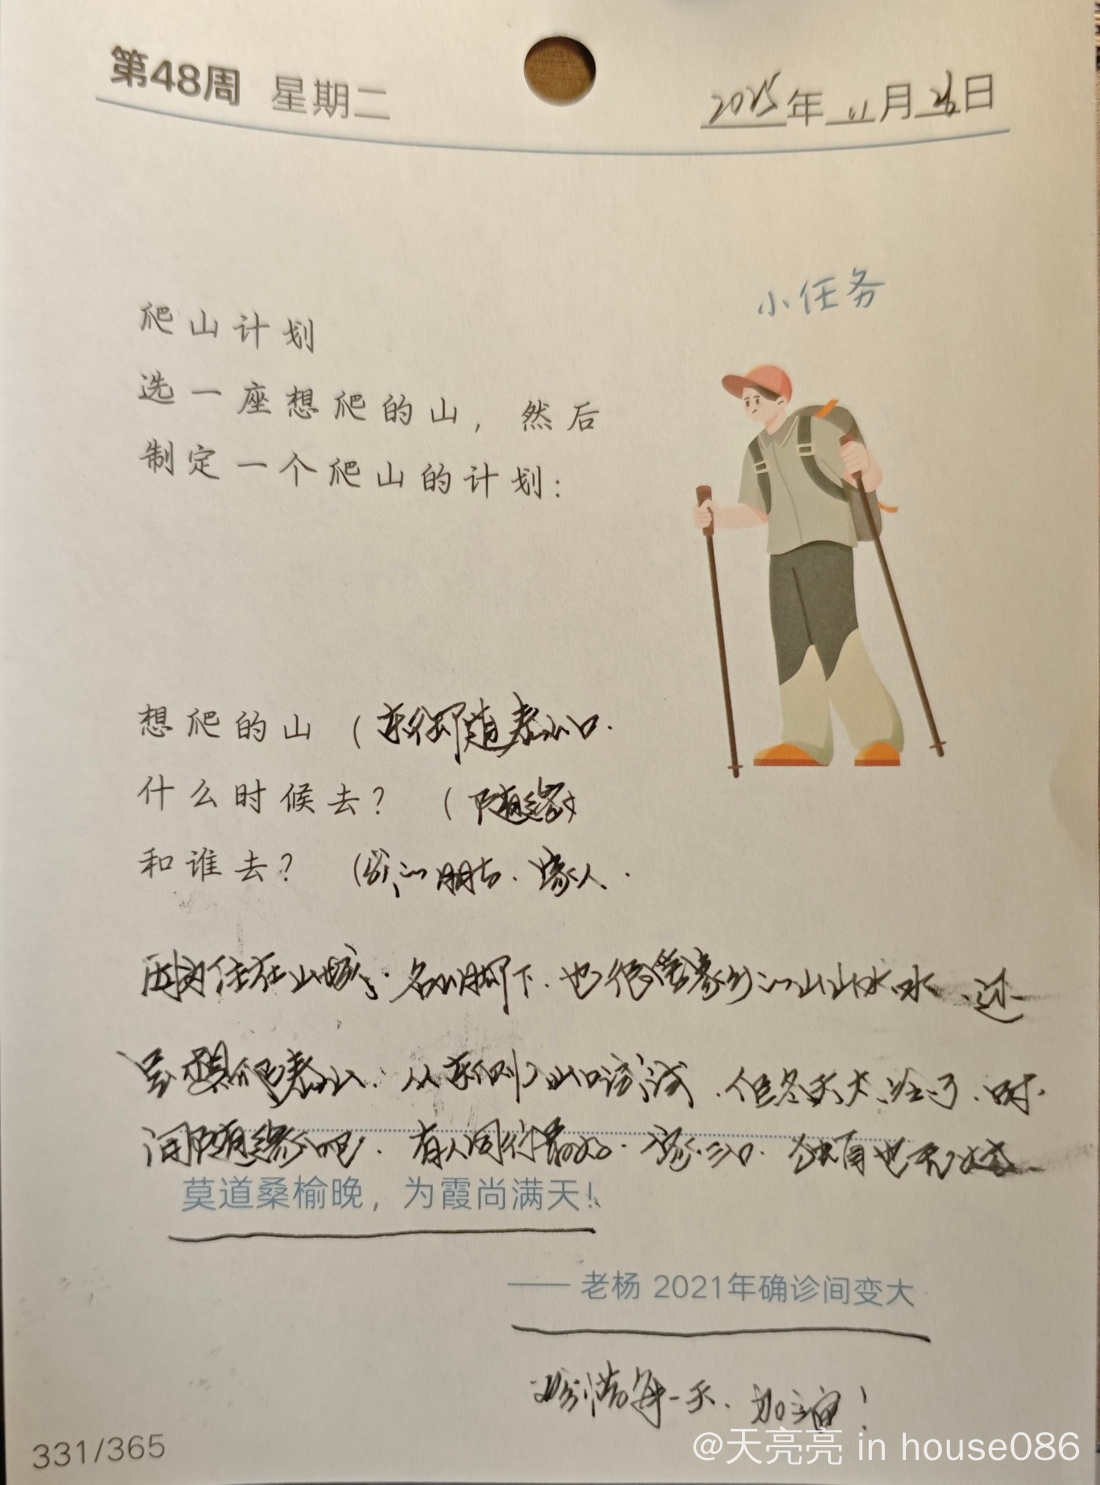 第48周 星期二
2025年11月26日
小任务
爬山计划
选一座想爬的山，然后
制定一个爬山的计划：
想爬的山（
什么时候去？（随缘）
和谁去？（朋友.家人.
因为住在山城.名山脚下.也很喜家乡的山山水水.还
是想爬泰山.从东侧入山口试试.但冬天太冷了.时
间随缘吧.有人同行最好.独自也无
莫道桑榆晚，为霞尚满天！
—— 老杨 2021年确诊间变大
珍惜每一天.加油！
331/365
@天亮亮 in house086